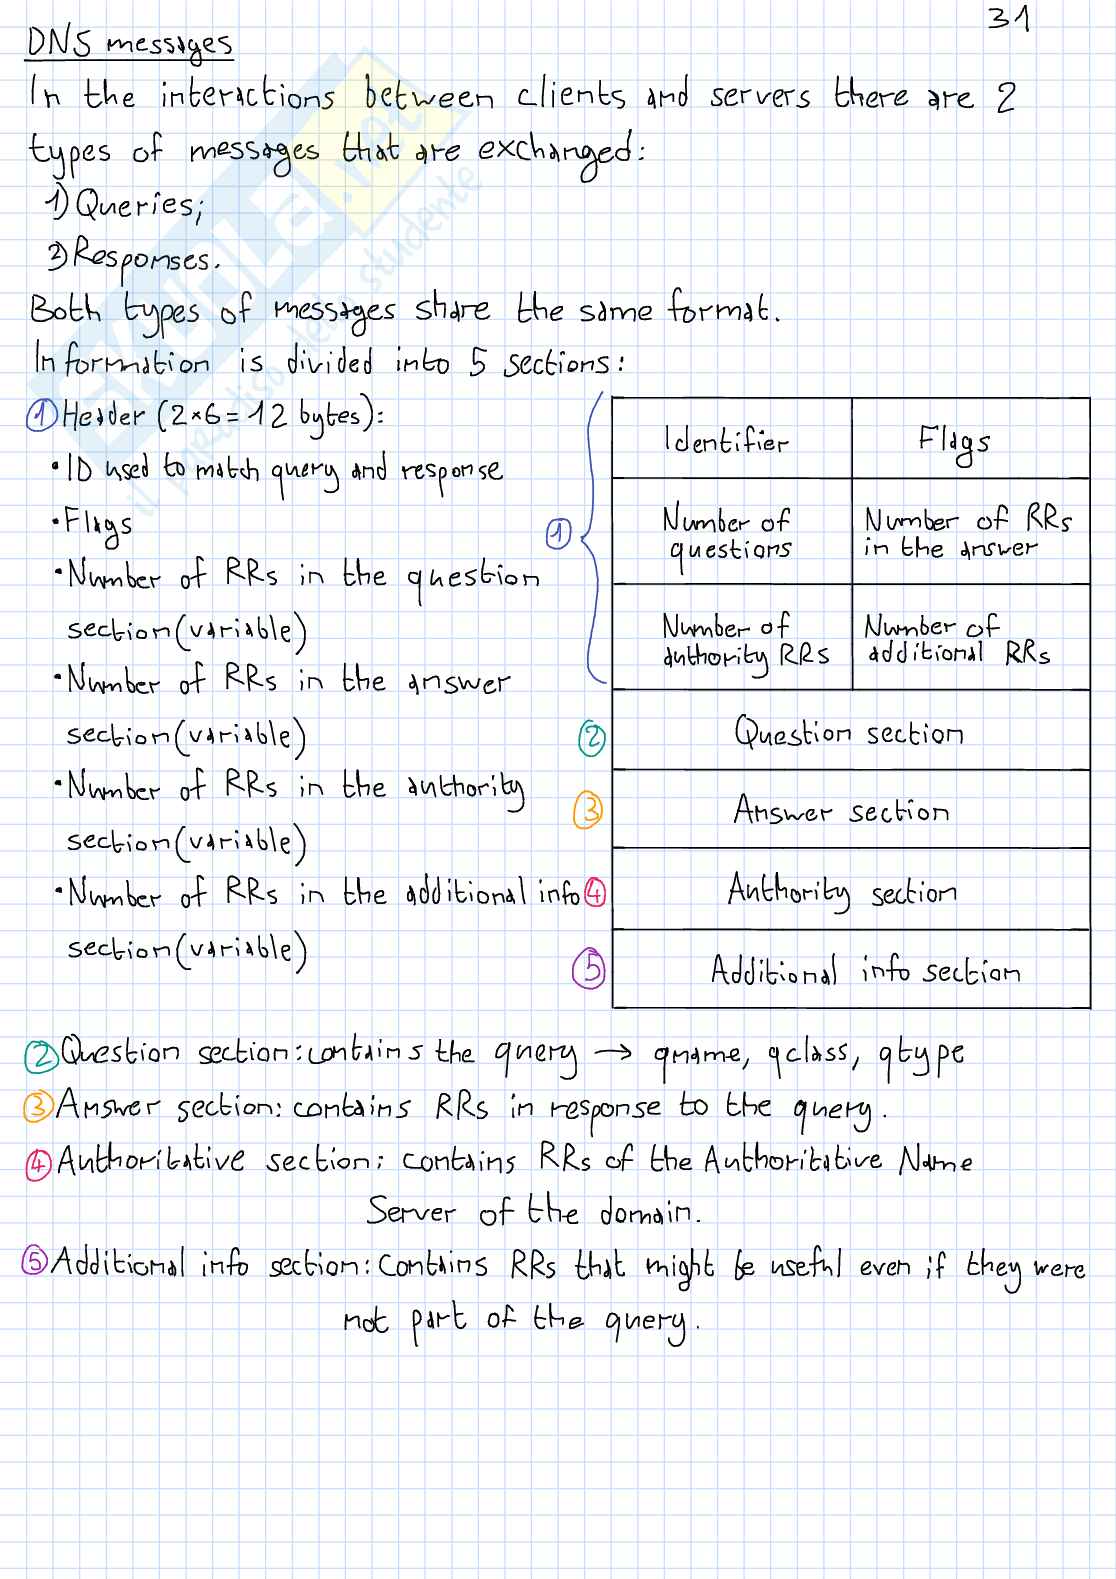 31
DNS messages
In the interactions between clients and servers there are 2
types of messages that are exchanged:
1) Queries;
2) Responses.
Both types of messages share the same format.
Information is divided into 5 sections:
① Header (2*6=12 bytes):
• ID used to match query and response
• Flags
• Number of RRs in the question
section (variable)
• Number of RRs in the answer
section (variable)
• Number of RRs in the authority
section (variable)
• Number of RRs in the additional info
section (variable)
①
Identifier
Flags
Number of
questions
Number of RRs
in the answer
Number of
authority RRs
Number of
additional RRs
② Question section
③ Answer section
④ Authority section
⑤ Additional info section
② Question section: contains the query → qname, qclass, qtype
③ Answer section: contains RRs in response to the query.
④ Authoritative section: contains RRs of the Authoritative Name
Server of the domain.
⑤ Additional info section: Contains RRs that might be useful even if they were
not part of the query.
skuola.net
il paradiso dello studente